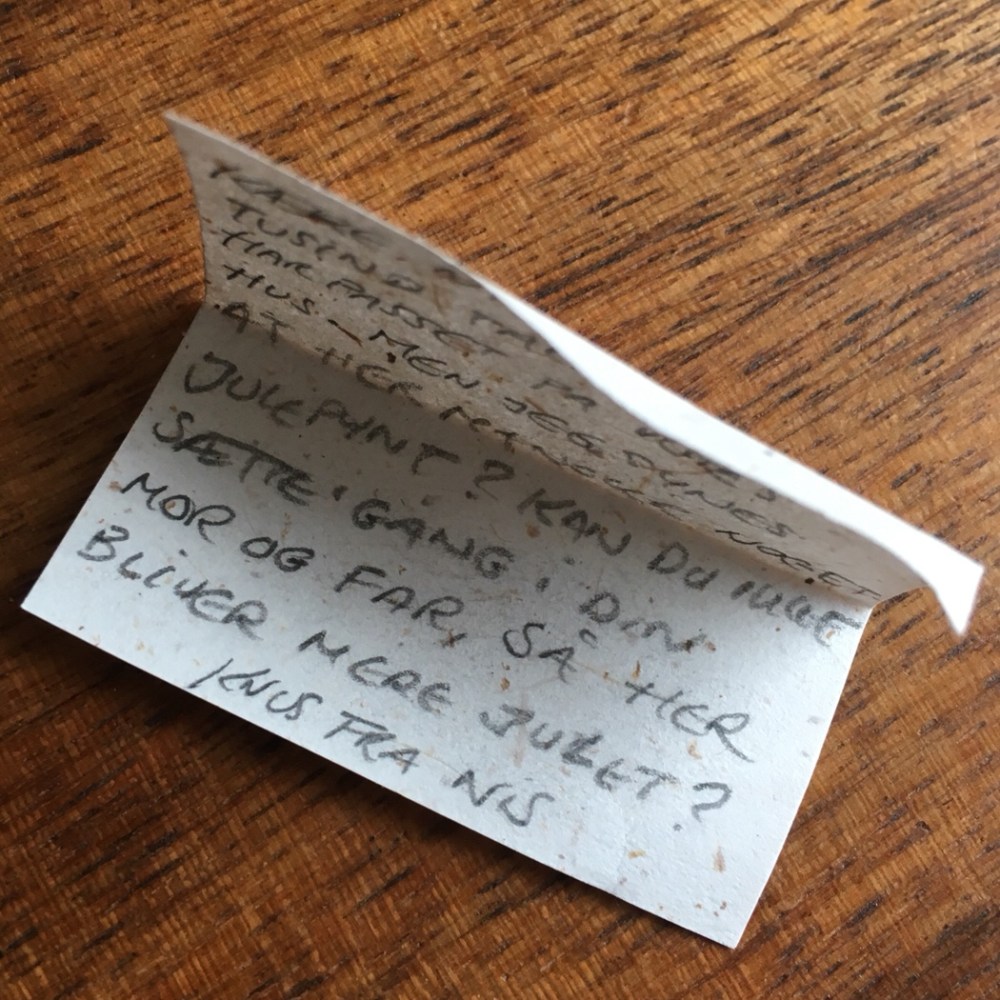 TUSIND
HAR PASSET PÅ
HUS - MEN JEG SYNES
AT HER MANGLER NOGET
JULEPYNT? KAN DU IKKE
SÆTTE GANG i DIN
MOR OG FAR, SÅ HER
BLIVER MERE JULET?
KNUS FRA NIS